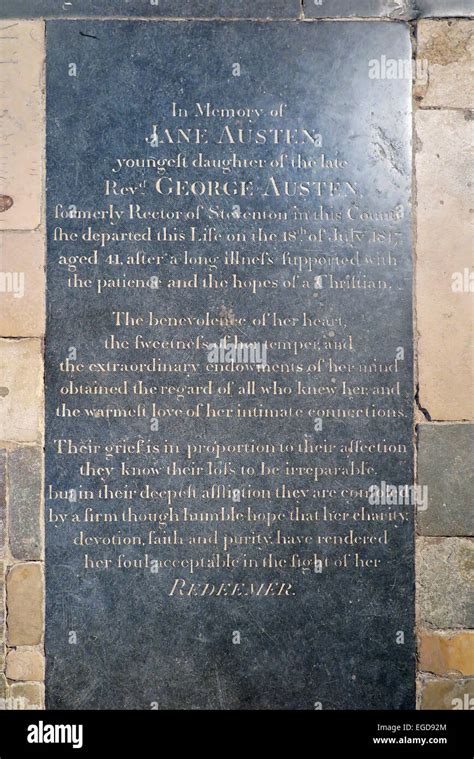 In Memory of
JANE AUSTEN,
youngeſt daughter of the late
Revd. GEORGE AUSTEN,
formerly Rector of Steventon in this County
ſhe departed this Life on the 18th. of July 1817,
aged 41, after a long illneſs ſupported with
the patience and the hopes of a Chriſtian.
The benevolence of her heart,
the ſweetneſs of her temper, and
the extraordinary endowments of her mind
obtained the regard of all who knew her, and
the warmeſt love of her intimate connections.
Their grief is in proportion to their affection
they know their loſs to be irreparable,
but in their deepeſt affliction they are conſoled
by a firm though humble hope that her charity,
devotion, faith and purity, have rendered
her ſoul acceptable in the ſight of her
REDEEMER.
alamy
alamy
Image ID: EGD92M
www.alamy.com